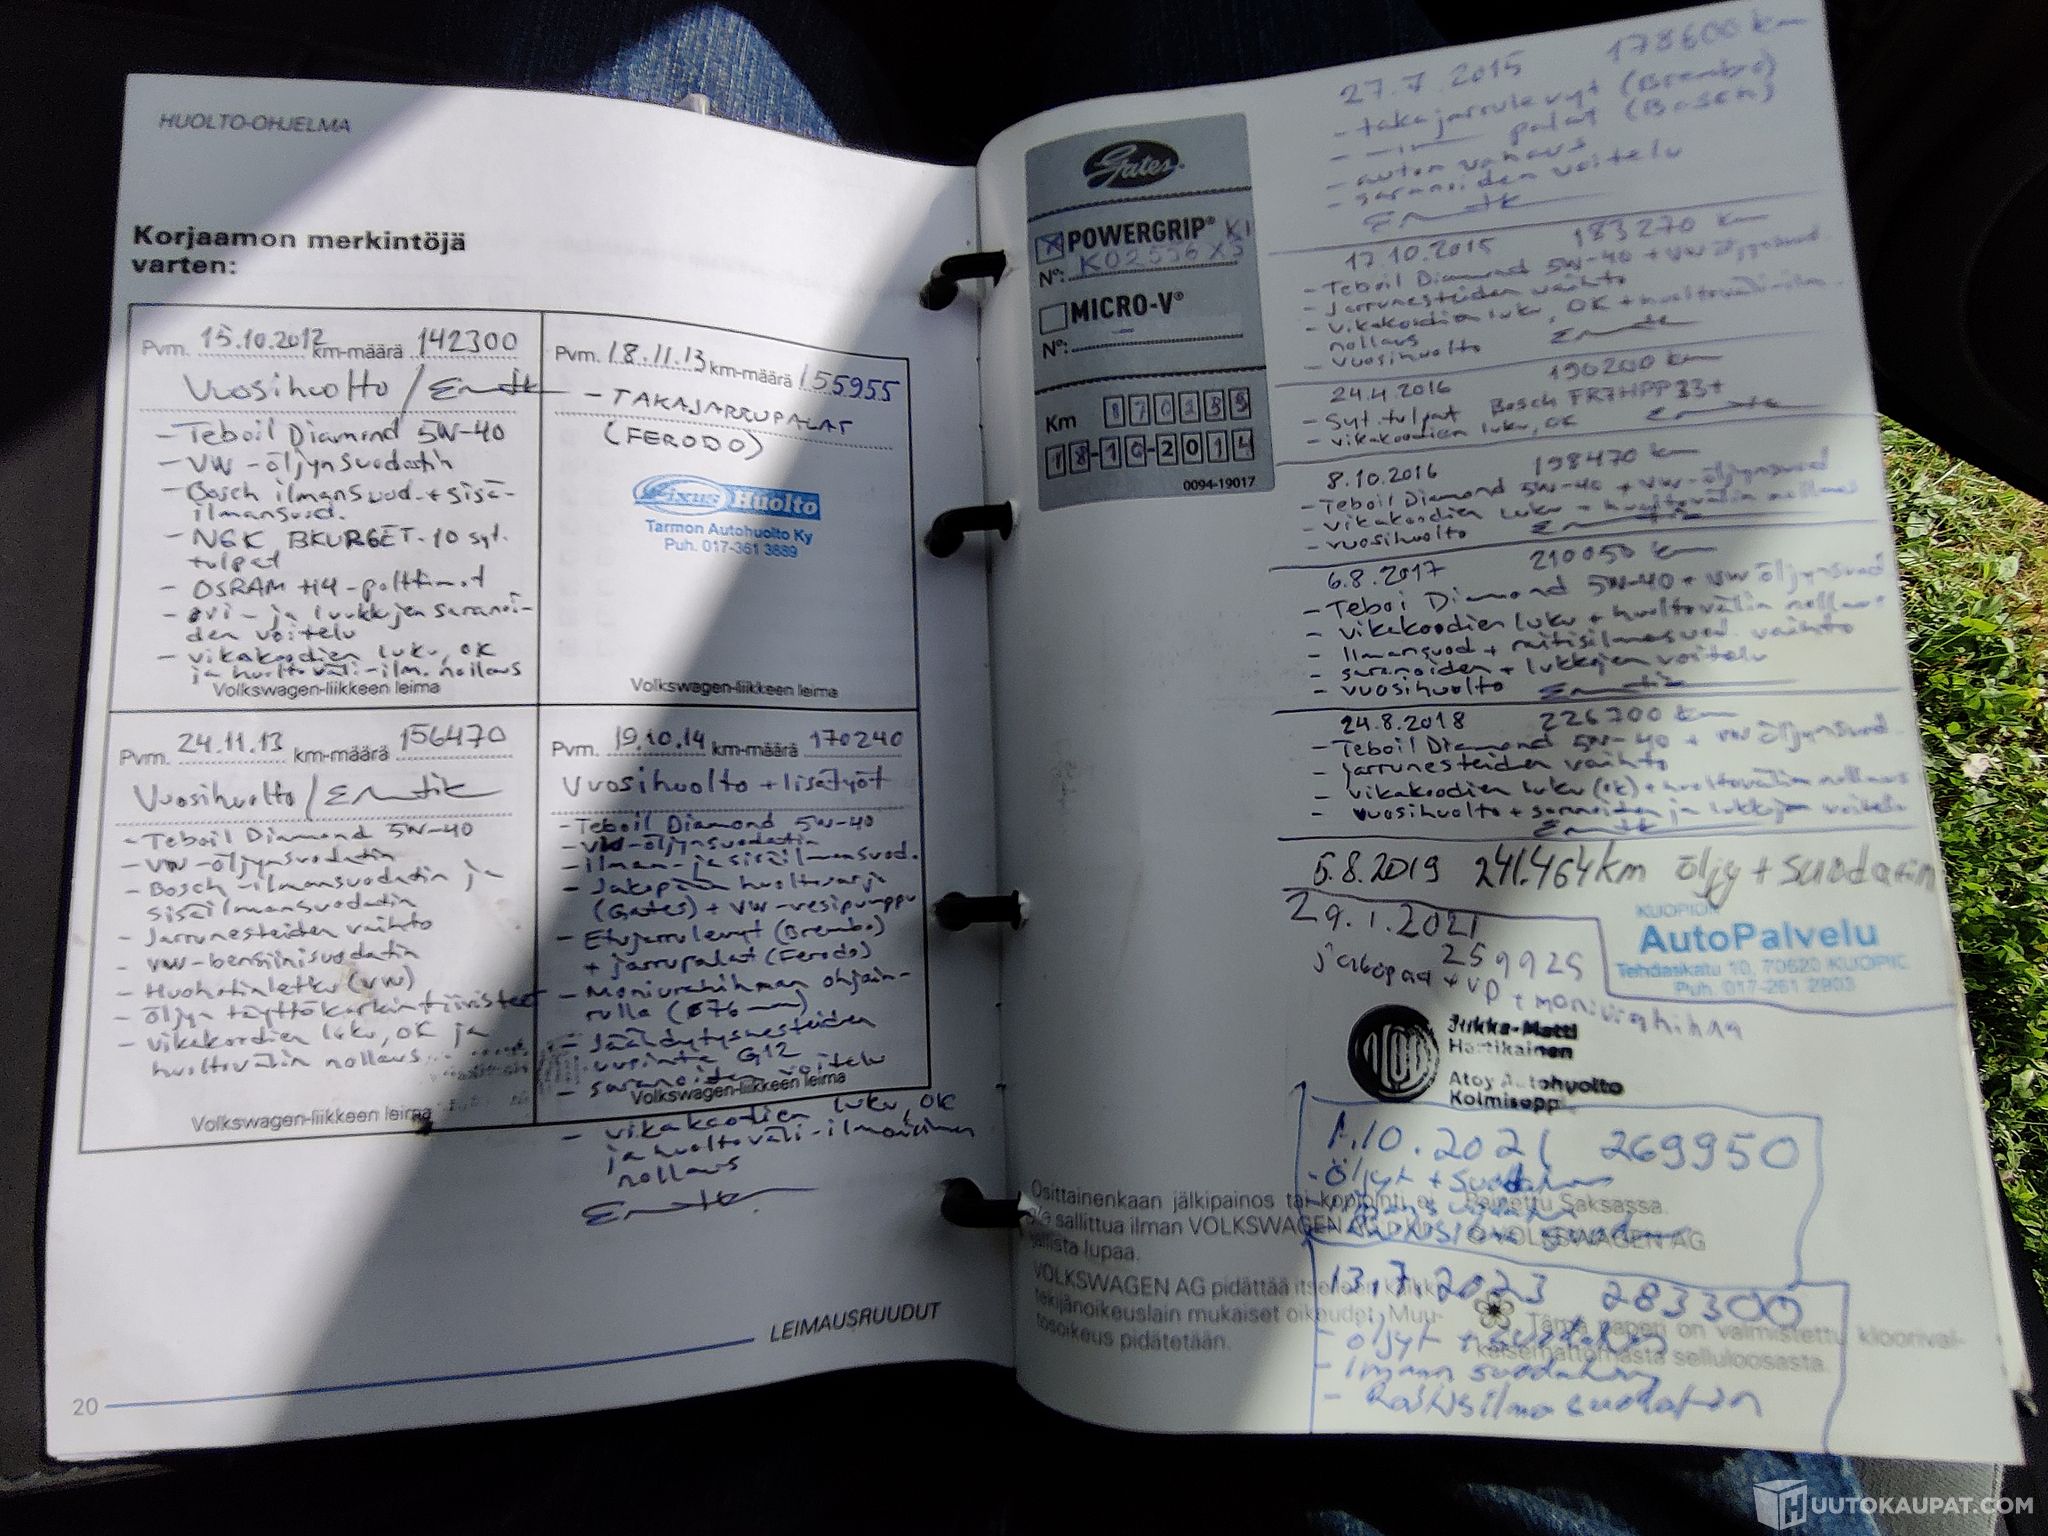 HUOLTO-OHJELMA
Korjaamon merkintöjä
varten:
Pvm. 15.10.2012 km-määrä 142300
Vuosihuolto /
- Teboil Diamond 5W-40
- VW-öljynsuodatin
- Bosch ilmansuod.+sisä-
ilmansuod.
- NGK BKUR6ET-10 syt.
tulpat
- OSRAM H4-polttimot
- ovi- ja luukkujen saranoi-
den voitelu
- vikakoodien luku, OK
ja huoltoväli-ilm. nollaus
Volkswagen-liikkeen leima
Pvm. 18.11.13 km-määrä 155955
- TAKAJARRUPALAT
(FERODO)
Fixus Huolto
Tarmon Autohuolto Ky
Puh. 017-361 3689
Volkswagen-liikkeen leima
Pvm. 24.11.13 km-määrä 156470
Vuosihuolto /
- Teboil Diamond 5W-40
- VW-öljynsuodatin
- Bosch-ilmansuodatin ja
sisäilmansuodatin
- Jarrunesteiden vaihto
- VW-bensiinisuodatin
- Huohotinletku (VW)
- öljyn täyttökorkin tiivisteet
- vikakoodien luku, OK ja
huoltovälin nollaus
Volkswagen-liikkeen leima
Pvm. 19.10.14 km-määrä 170240
Vuosihuolto + lisätyöt
- Teboil Diamond 5W-40
- VW-öljynsuodatin
- ilman- ja sisäilmansuod.
- Jakopään huoltosarja
(Gates) + VW-vesipumppu
- Etujarrulevyt (Brembo)
+ jarrupalat (Ferodo)
- Moniurahihnan ohjain-
rulla (ø76 mm)
- Jäähdytysnesteiden
uusinta G12
- saranoiden voitelu
Volkswagen-liikkeen leima
- vikakoodien luku, OK
ja huoltoväli-ilmaisimen
nollaus
LEIMAUSRUUDUT
20
Gates
POWERGRIP® K1
Nº: K02556XS
MICRO-V®
Nº:
Km 170239
18-10-2014
0094-19017
27.7.2015 178600 km
- takajarrulevyt (Brembo)
- palat (Bosch)
- auton vahaus
- saranoiden voitelu
17.10.2015 183270 km
- Teboil Diamond 5W-40 + VW öljynsuod.
- Jarrunesteiden vaihto
- vikakoodien luku, OK + huoltoväli-ilm.
nollaus
- vuosihuolto
24.4.2016 190200 km
- Syt.tulpat Bosch FR7HPP33+
- vikakoodien luku, OK
8.10.2016 198470 km
- Teboil Diamond 5W-40 + VW-öljynsuod
- vikakoodien luku + huoltovälin nollaus
- vuosihuolto
6.8.2017 210050 km
- Teboi Diamond 5W-40 + VW öljynsuod
- vikakoodien luku + huoltovälin nollaus
- Ilmansuod + raitisilmasuod. vaihto
- saranoiden + lukkojen voitelu
- vuosihuolto
24.8.2018 226700 km
- Teboil Diamond 5W-40 + VW öljynsuod.
- jarrunesteiden vaihto
- vikakoodien luku (ok) + huoltovälin nollaus
- vuosihuolto + saranoiden ja lukkojen voitelu
5.8.2019 241.464km öljy + suodatin
KUOPION
AutoPalvelu
Tehdaskatu 10, 70620 KUOPIO
Puh. 017-261 2803
29.1.2021
259925
jakopää + VP + moniurahihna
Jukka-Matti
Hartikainen
Atoy Autohuolto
Kolmisoppi
1.10.2021 269950
- Öljyt + Suodatus
Osittainenkaan jälkipainos tai kopiointi ei
ole sallittua ilman VOLKSWAGEN AG:n
lupaa.
Painettu Saksassa.
© VOLKSWAGEN AG
VOLKSWAGEN AG pidättää itselleen kaikki
tekijänoikeuslain mukaiset oikeudet. Muu-
tosoikeus pidätetään.
13.7.2023 283300
- öljyt + suodatin
- ilman suodatin
- Raitisilmasuodatin
Tämä paperi on valmistettu kloorival-
kaisemattomasta selluloosasta.
HUUTOKAUPAT.COM